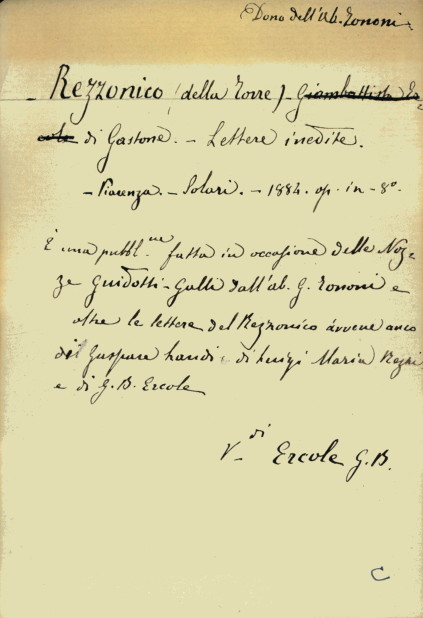 Dono dell'Ab. Tononi
- Rezzonico (della Torre) - Giambattista Er=
cole di Gastone. - Lettere inedite.
- Piacenza. - Solari. - 1884. op. in - 8º.
È una pubbl.ne fatta in occasione delle Noz=
ze Guidotti-Galli dall'ab. G. Tononi e
oltre le lettere del Rezzonico àvvene anco
di Gaspare Landi e di Luigi Maria
e di G. B. Ercole
V_ di Ercole G. B.
C